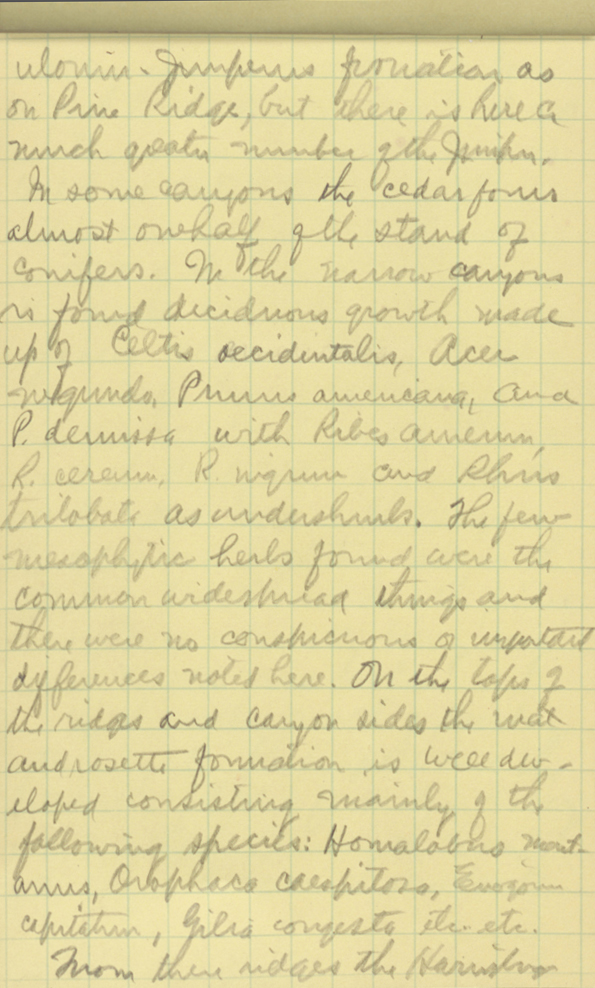 Juniperus formation as
on Pine Ridge, but there is here a
much greater number of the Junipr.
In some canyons the cedar forms
almost one half of the stand of
conifers. In the narrow canyons
is found deciduous growth made
up of Celtis occidentalis, Acer
negundo, Prunus americana, and
P. demissa with Ribes
R. cereum, R. nigrum and Rhus
trilobata as undershrubs. The few
mesophytic herbs found were the
common widespread things and
there were no conspicuous or important
differences noted here. On the tops of
the ridges and canyon sides the mat
and rosette formation is well dev-
eloped consisting mainly of the
following species: Homalobus mont-
anus, Orophaca caespitosa,
capitatum, Gilia congesta etc. etc.
From these ridges the